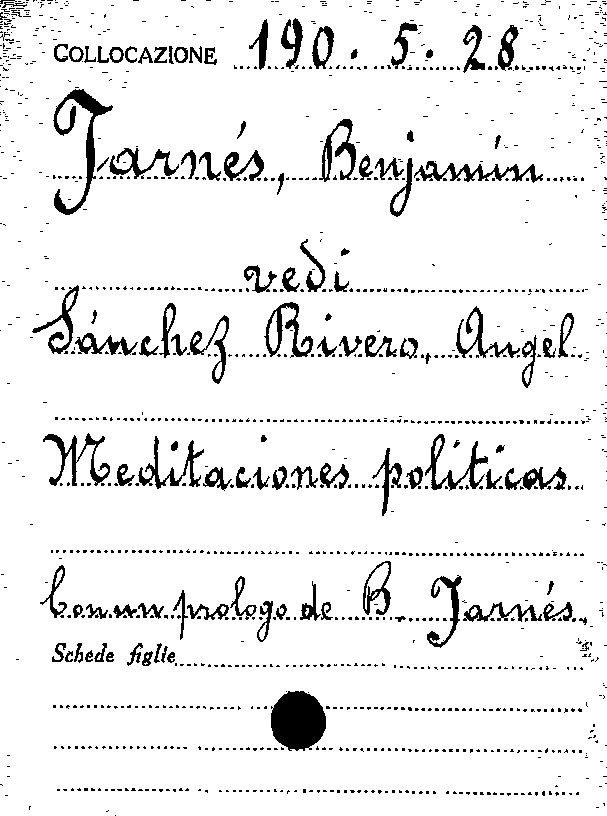 COLLOCAZIONE 190. 5. 28
Jarnés, Benjamín
vedi
Sánchez Rivero, Angel
Meditaciones políticas
Con un prologo de B. Jarnés.
Schede figlie